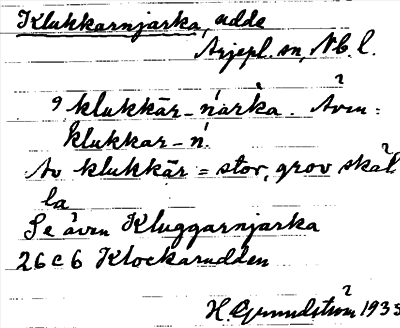 Klukkarnjarka, udde
Arjepl. sn, Nb. l.
klukkār-ńar̀ka. Även:
klukkar-ń.
Av klukkār = stor, grov skål
la
Se även Kluggarnjarka
26 c 6 Klockarudden
H. Grundström 1935